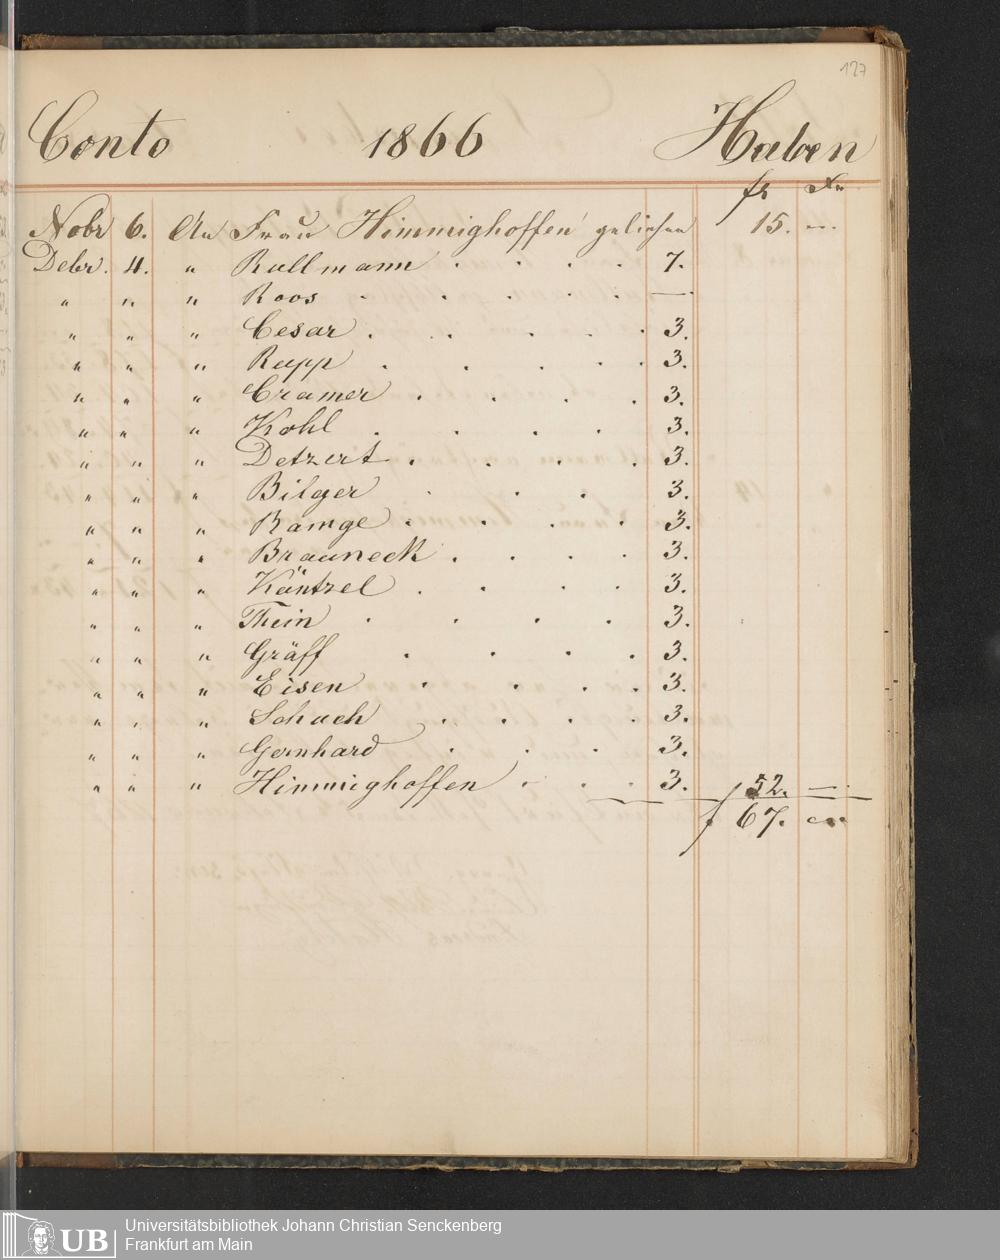 127
Conto 1866 Haben
fl Xr
Nobr 6. An Frau Himmighoffen geliehen 15. „
Debr. 4. „ Rullmann . . . . 7.
„ „ „ Roos . . . . . —
„ „ „ Cesar . . . . 3.
„ „ „ Rapp . . . . . 3.
„ „ „ Cramer . . . . 3.
„ „ „ Kohl . . . . 3.
„ „ „ Detzert . . . . 3.
„ „ „ Bilger . . . 3.
„ „ „ Ramge . . . . 3.
„ „ „ Brauneck . . . . 3.
„ „ „ Käntzel . . . . 3.
„ „ „ Thein . . . . 3.
„ „ „ Gräff . . . . 3.
„ „ „ Eisen . . . . 3.
„ „ „ Schuch . . . . 3.
„ „ „ Gernhard . . . 3.
„ „ „ Himmighoffen . . . 3. 52. —
f 67. „
UB Universitätsbibliothek Johann Christian Senckenberg
Frankfurt am Main